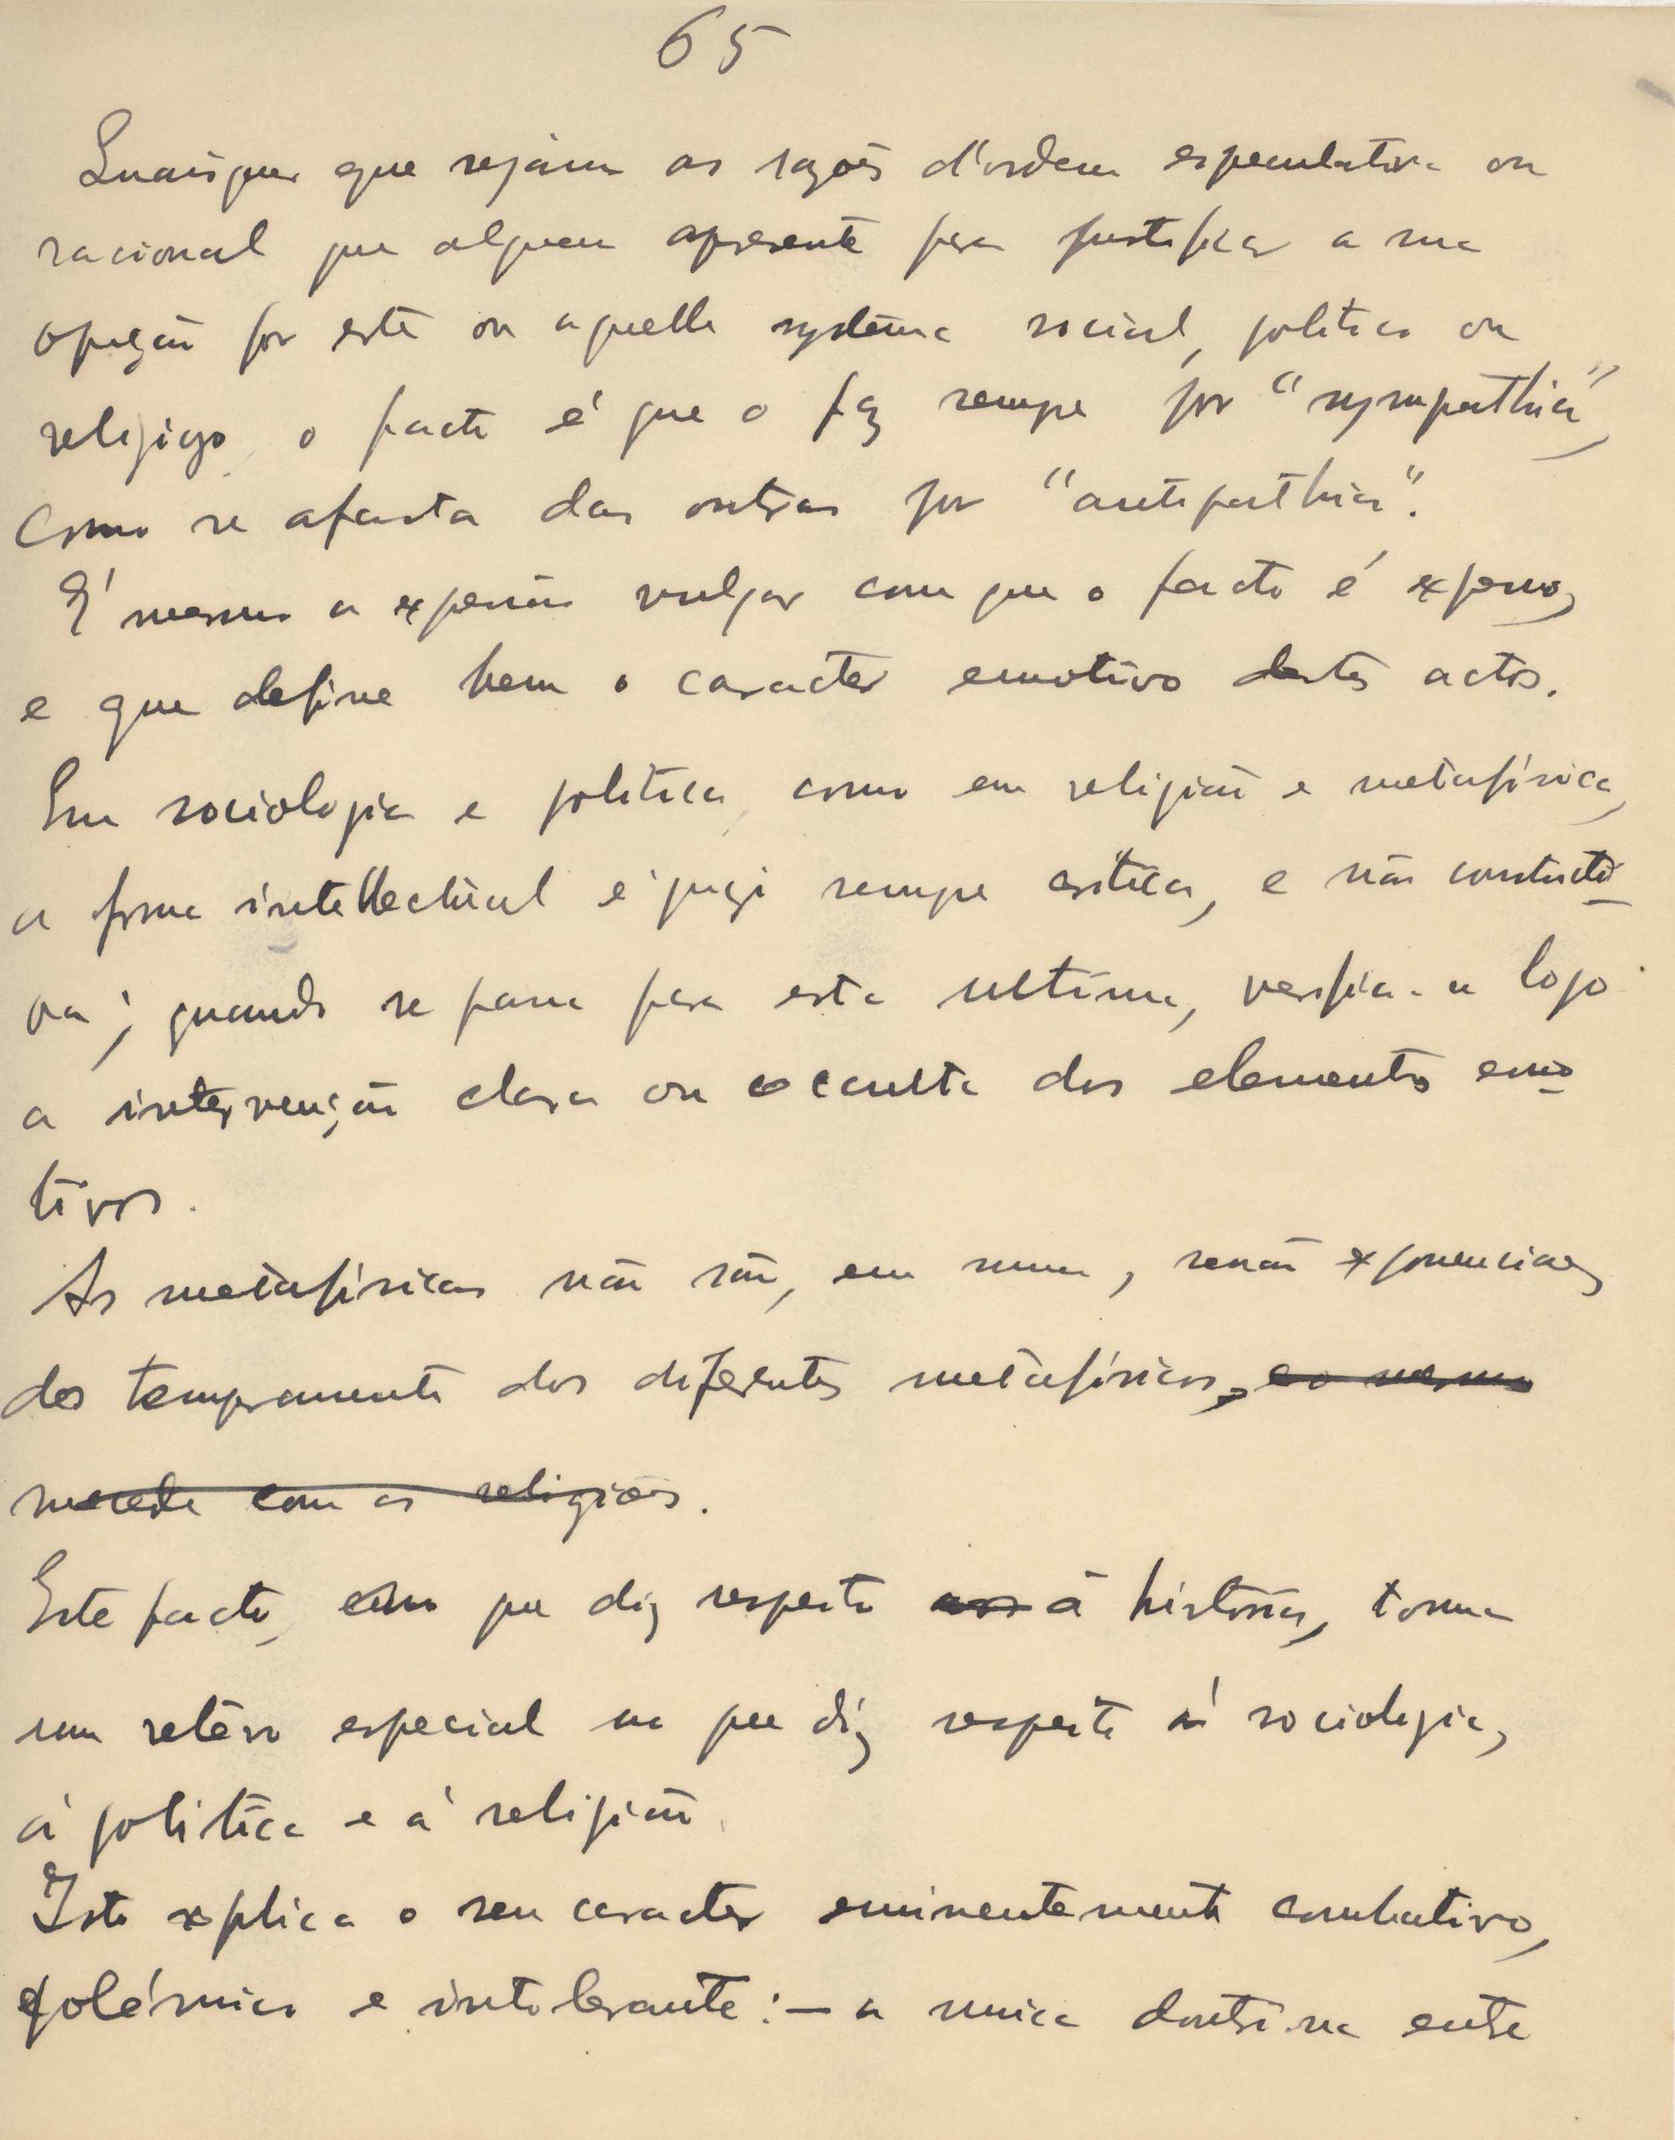 65
Quaisquer que sejam as razões d'ordem especulativa ou
racional que alguem apresente para justificar a sua
opção por este ou aquelle systema social, politico ou
religioso, o facto é que o faz sempre por "sympathia",
como se afasta das outras por "antipathia".
É mesmo a expressão vulgar com que o facto é expresso,
e que define bem o caracter emotivo destes actos.
Em sociologia e politica, como em religião e metafísica,
a forma intellectual é quasi sempre critica, e não constructi-
va; quando se passa para esta ultima, verifica-se logo
a intervenção clara ou occulta dos elementos emo-
tivos.
As metafísicas não são, em suma, senão exponenciaes
do temperamento dos diferentes metafísicos, e o mesmo
sucede com as religiões.
Este facto, que diz respeito á história, toma
um relêvo especial no que diz respeito á sociologia,
á politica e á religião.
Isto explica o seu caracter eminentemente combativo,
polémico e intolerante: — a unica doutrina entre